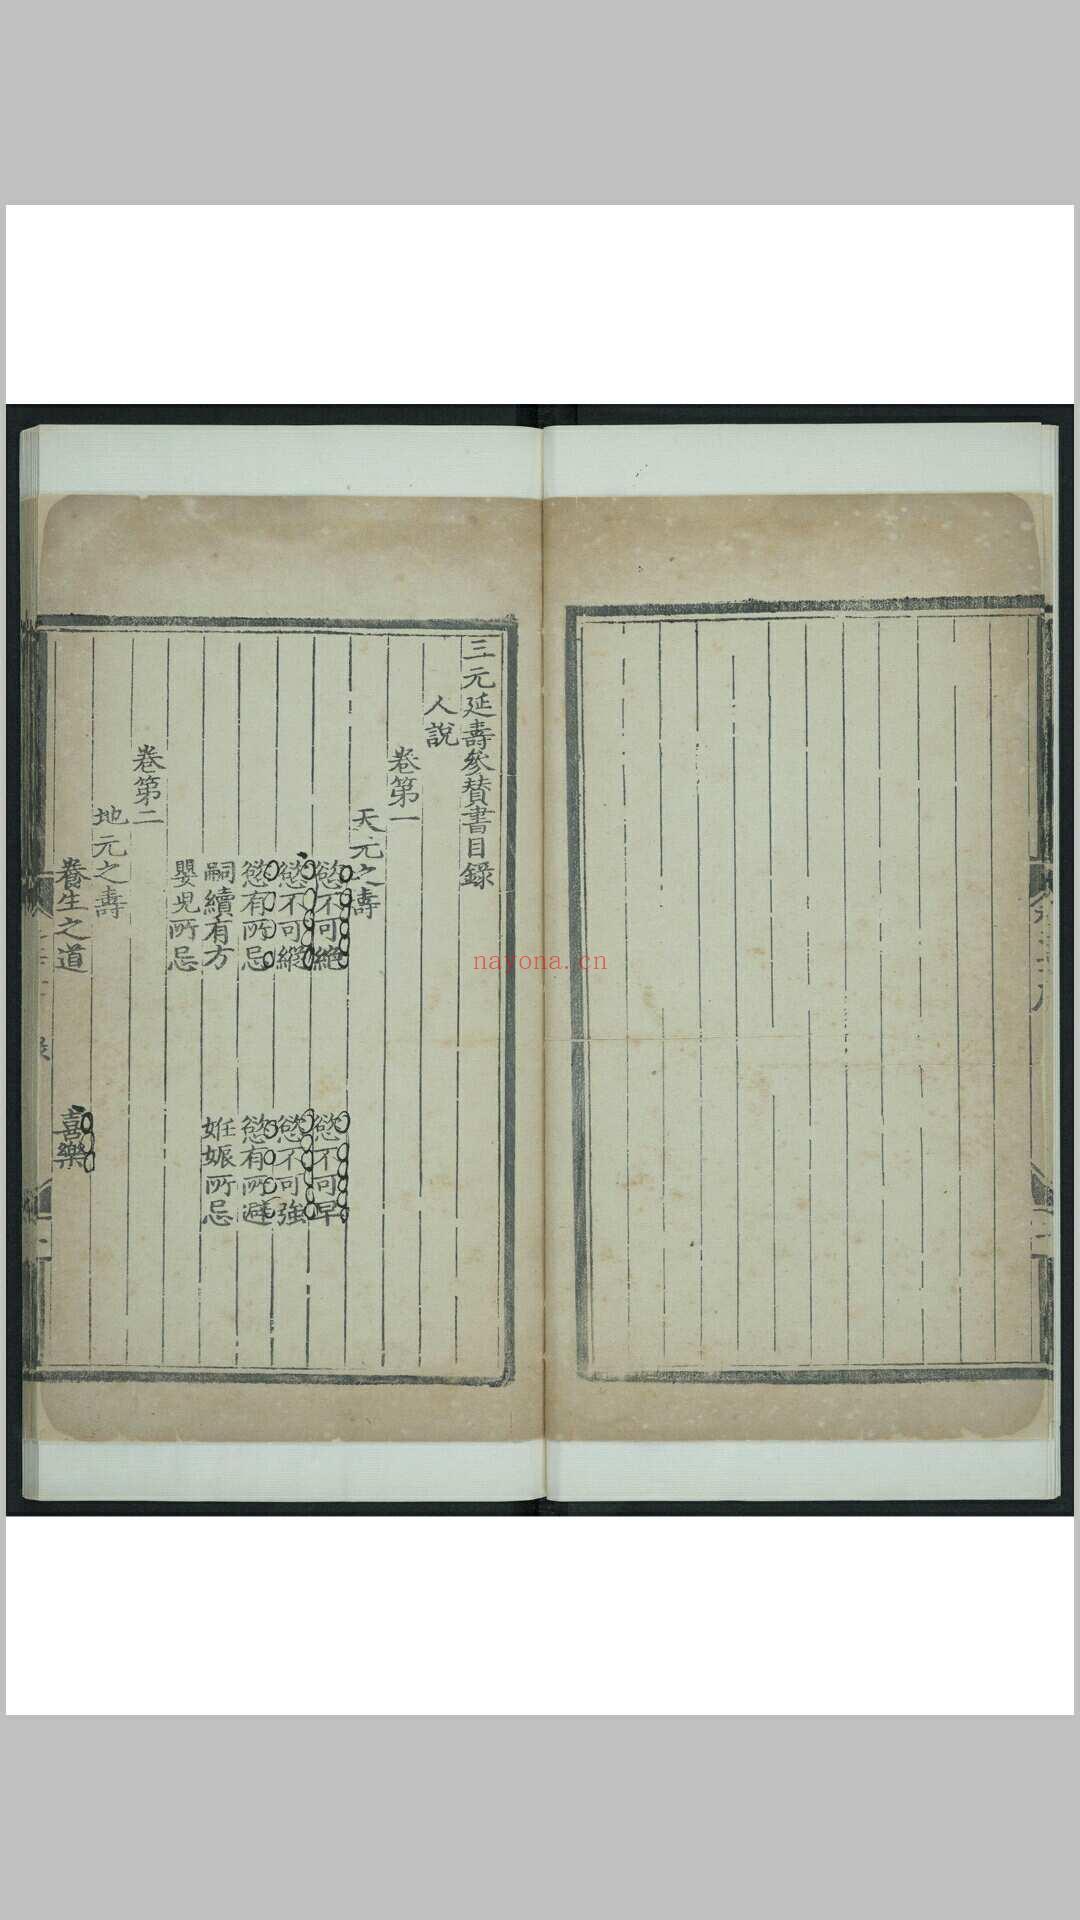 三元延壽參賛書目錄
人說
卷第一
天元之壽
慾不可絶
慾不可早
慾不可縱
慾不可強
慾有所忌
慾有所避
嗣續有方
妊娠所忌
嬰兒所忌
卷第二
地元之壽
養生之道
喜樂
nayona.cn